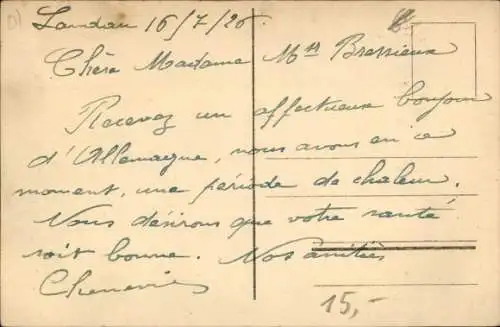 Landau 16/7/26
Chère Madame Mʳʳ Bressieux
Recevez un affectueux bonjour
d'Allemagne, nous avons en ce
moment, une période de chaleur.
Nous désirons que votre santé
soit bonne. Nos amitiés
15,-